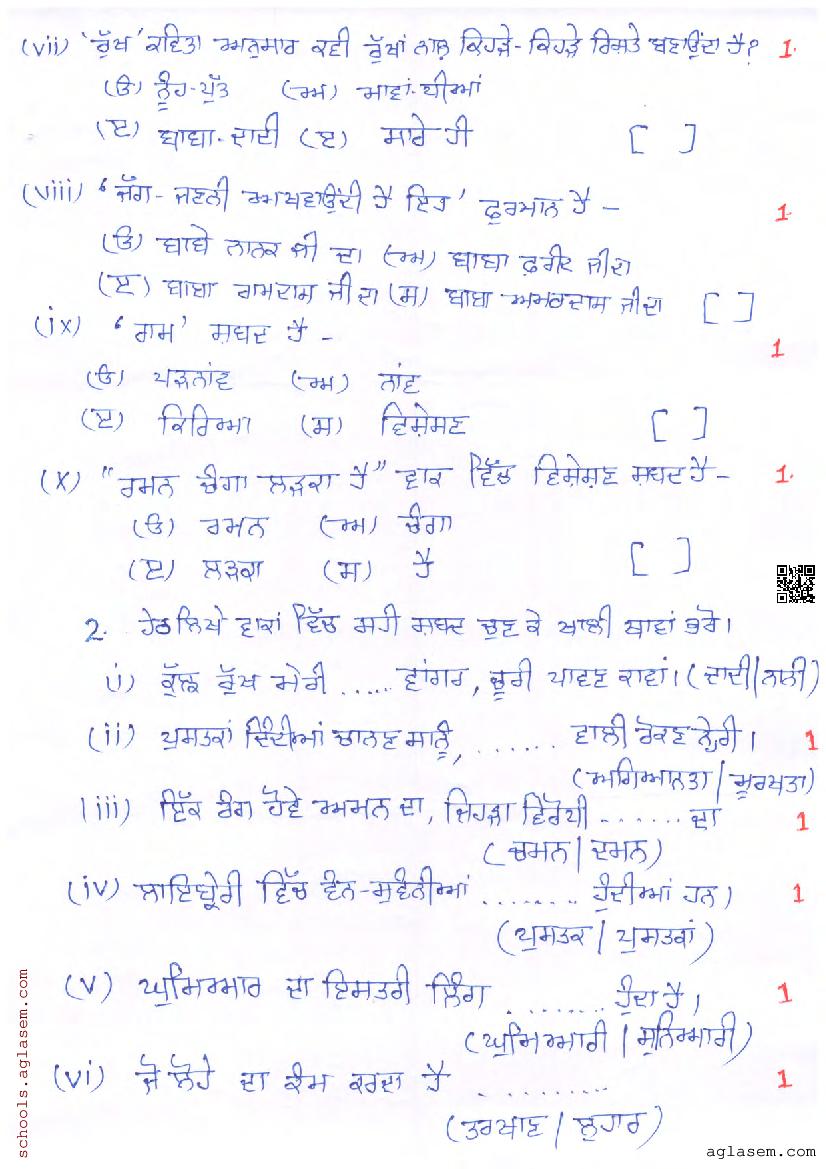 (vii) 'ਰੁੱਖ' ਕਵਿਤਾ ਅਨੁਸਾਰ ਕਵੀ ਰੁੱਖਾਂ ਨਾਲ਼ ਕਿਹੜੇ-ਕਿਹੜੇ ਰਿਸ਼ਤੇ ਬਣਾਉਂਦਾ ਹੈ? 1.
(ੳ) ਨੂੰਹ-ਪੁੱਤ (ਅ) ਮਾਵਾਂ-ਧੀਆਂ
(ੲ) ਬਾਬਾ-ਦਾਦੀ (ੲ) ਸਾਰੇ ਹੀ [ ]
(viii) 'ਜੱਗ-ਜਣਨੀ ਅਖਵਾਉਂਦੀ ਹੈ ਇਹ' ਫ਼ੁਰਮਾਨ ਹੈ – 1.
(ੳ) ਬਾਬੇ ਨਾਨਕ ਜੀ ਦਾ (ਅ) ਬਾਬਾ ਫ਼ਰੀਦ ਜੀ ਦਾ
(ੲ) ਬਾਬਾ ਰਾਮਦਾਸ ਜੀ ਦਾ (ਸ) ਬਾਬਾ ਅਮਰਦਾਸ ਜੀ ਦਾ [ ]
(ix) 'ਰਾਮ' ਸ਼ਬਦ ਹੈ – 1
(ੳ) ਪੜਨਾਂਵ (ਅ) ਨਾਂਵ
(ੲ) ਕਿਰਿਆ (ਸ) ਵਿਸ਼ੇਸਣ [ ]
(x) "ਰਮਨ ਚੰਗਾ ਲੜਕਾ ਹੈ" ਵਾਕ ਵਿੱਚ ਵਿਸ਼ੇਸ਼ਣ ਸ਼ਬਦ ਹੈ – 1.
(ੳ) ਰਮਨ (ਅ) ਚੰਗਾ
(ੲ) ਲੜਕਾ (ਸ) ਹੈ [ ]
2. ਹੇਠ ਲਿਖੇ ਵਾਕਾਂ ਵਿੱਚ ਸਹੀ ਸ਼ਬਦ ਚੁਣ ਕੇ ਖਾਲੀ ਥਾਵਾਂ ਭਰੋ।
i) ਕੁੱਲ ਰੁੱਖ ਮੇਰੀ ...... ਵਾਂਗਰ, ਚੂਰੀ ਪਾਵਣ ਕਾਵਾਂ। (ਦਾਦੀ/ਨਾਨੀ)
(ii) ਪੁਸਤਕਾਂ ਦਿੰਦੀਆਂ ਚਾਨਣ ਸਾਨੂੰ, ....... ਵਾਲੀ ਰੋਕਣ ਨ੍ਹੇਰੀ। 1
(ਅਗਿਆਨਤਾ/ਮੂਰਖਤਾ)
iii) ਇੱਕ ਰੰਗ ਹੋਵੇ ਅਮਨ ਦਾ, ਜਿਹੜਾ ਵਿਰੋਧੀ ....... ਦਾ 1
(ਚਮਨ/ਦਮਨ)
(iv) ਲਾਇਬ੍ਰੇਰੀ ਵਿੱਚ ਵੰਨ-ਸੁਵੰਨੀਆਂ ........ ਹੁੰਦੀਆਂ ਹਨ। 1
(ਪੁਸਤਕ/ਪੁਸਤਕਾਂ)
(v) ਘੁਮਿਆਰ ਦਾ ਇਸਤਰੀ ਲਿੰਗ ........ ਹੁੰਦਾ ਹੈ। 1
(ਘੁਮਿਆਰੀ/ਸੁਨਿਆਰੀ)
(vi) ਜੋ ਲੋਹੇ ਦਾ ਕੰਮ ਕਰਦਾ ਹੈ .......... 1
(ਤਰਖਾਣ/ਲੁਹਾਰ)
schools.aglasem.com
aglasem.com